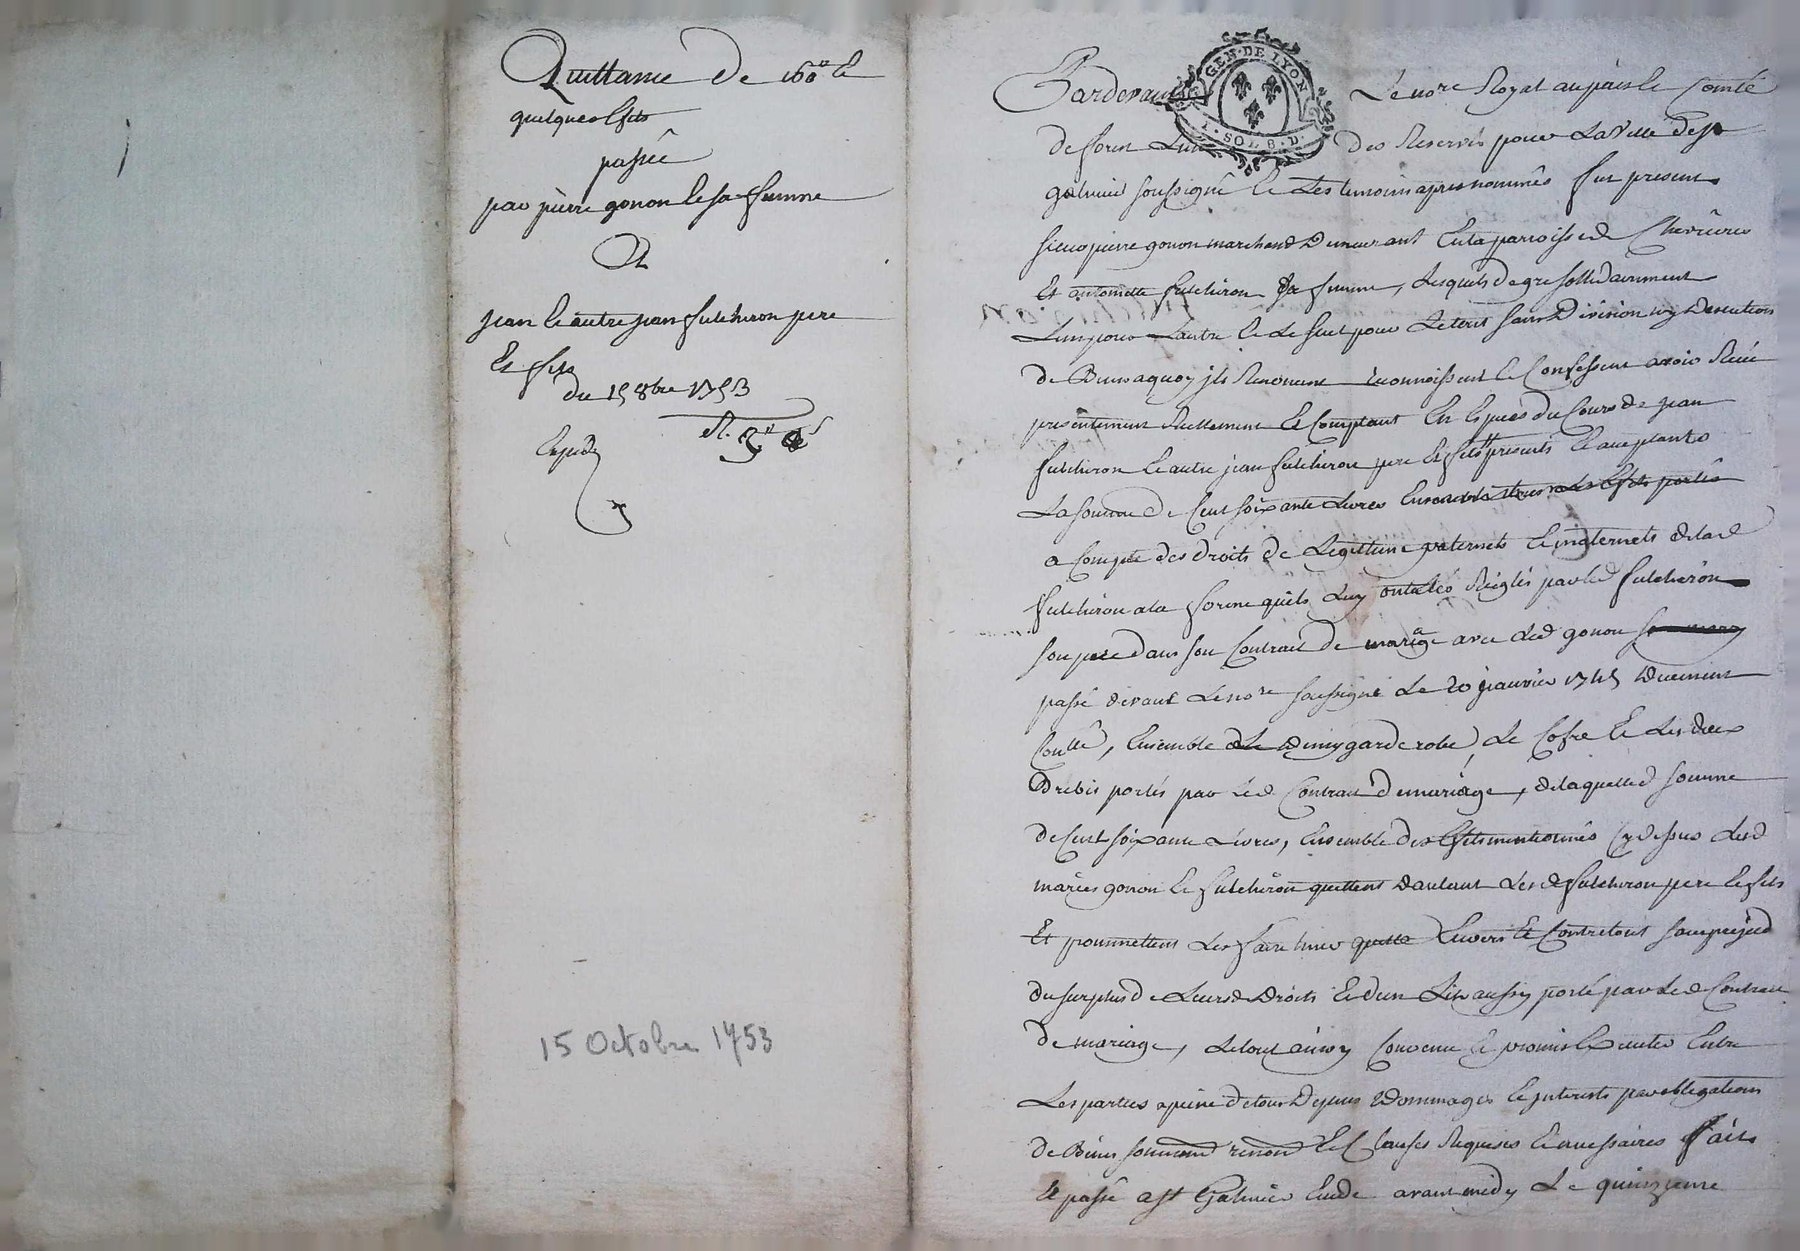 Quittance de 160ll &
quelques effets
passée
par pierre gonon & sa femme
A
jean & autre jean fulchiron pere
Et fils
du 15 8bre 1753
Expedié
15 Octobre 1753
GEN. DE LYON
1. SOL 8. D.
Pardevant Le nore Royal au païs & Comté
de forest Lun des Reservés pour La Ville de st
galmier soussigné & Les temoins apres nommés fut present
sieur pierre gonon marchand Demeurant En la parroisse de Chevrieres
Et antoinette fulchiron Sa femme, Lesquels de gre sollidairement
Lun pour Lautre & Le seul pour Le tout sans Division ny Discution
de Biens aquoy ils Renoncent reconnoissent & Confessent avoir Receu
presentement Reellement & Comptant En Especes du Cours de jean
fulchiron & autre jean fulchiron pere Et fils presents & acceptants
La somme de Cent soixante Livres
a Compte des droits de Legitime paternels & maternels de lad
fulchiron a la forme quils Luy ont étés Réglés par led fulchiron
son pere dans son Contract de mariage avec Led gonon
passé devant Le nore soussigné Le 20 janvier 1745 Duement
Conllé, Ensemble Le garderobe, Le Cofre & Les deux
Brebis portés par Led Contract de mariage, de laquelle somme
de Cent soixante Livres, Ensemble des Effets mentionnés Cy dessus Lesd
mariés gonon & fulchiron quittent dautant Lesd fulchiron pere & fils
Et promettent Les faire tenir quitte Envers Et Contre tous sans prejud
du surplus de Leursd Droits & dun Lit aussy porté par Led Contract
de mariage, Le tout ainsy Convenu & promis Executer Entre
Les parties a peine de tous Depens Dommages & interests par obligations
de Biens soumond renond Et Clauses Requises & necessaires fait
& passé a st Galmier Etude avant midy Le quinzieme